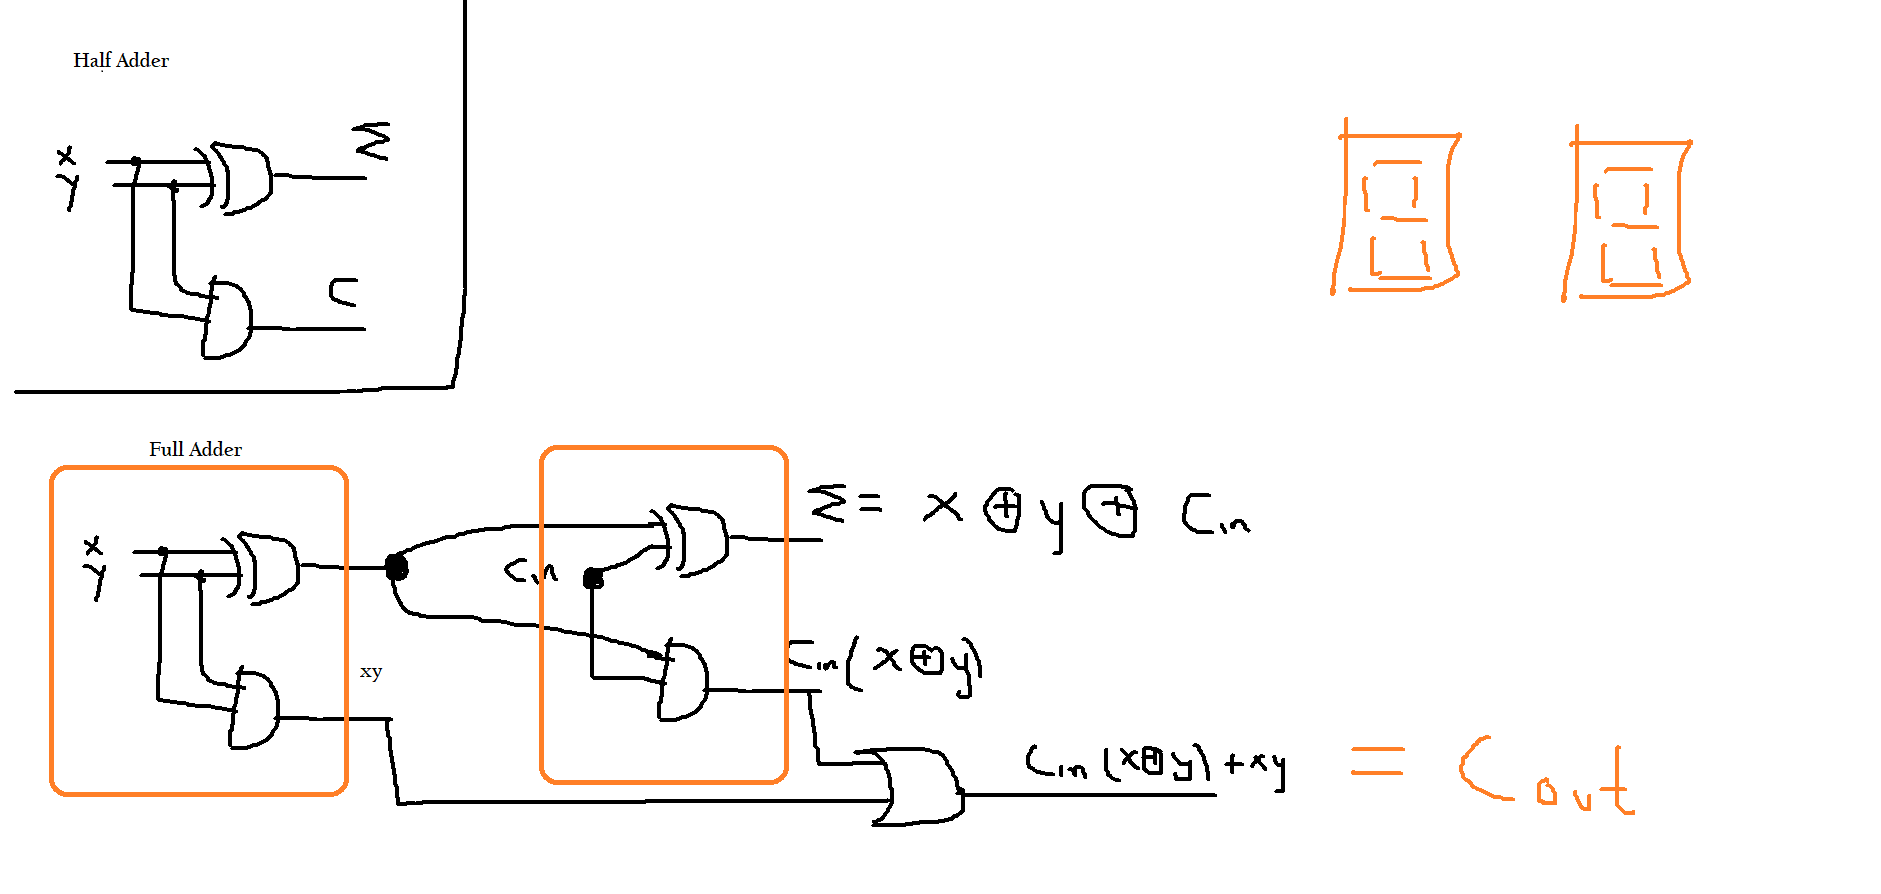 Half Adder
x
y
Σ
C
Full Adder
x
y
Cin
Σ = x ⊕ y ⊕ Cin
xy
Cin (x⊕y)
Cin (x⊕y) + xy = Cout